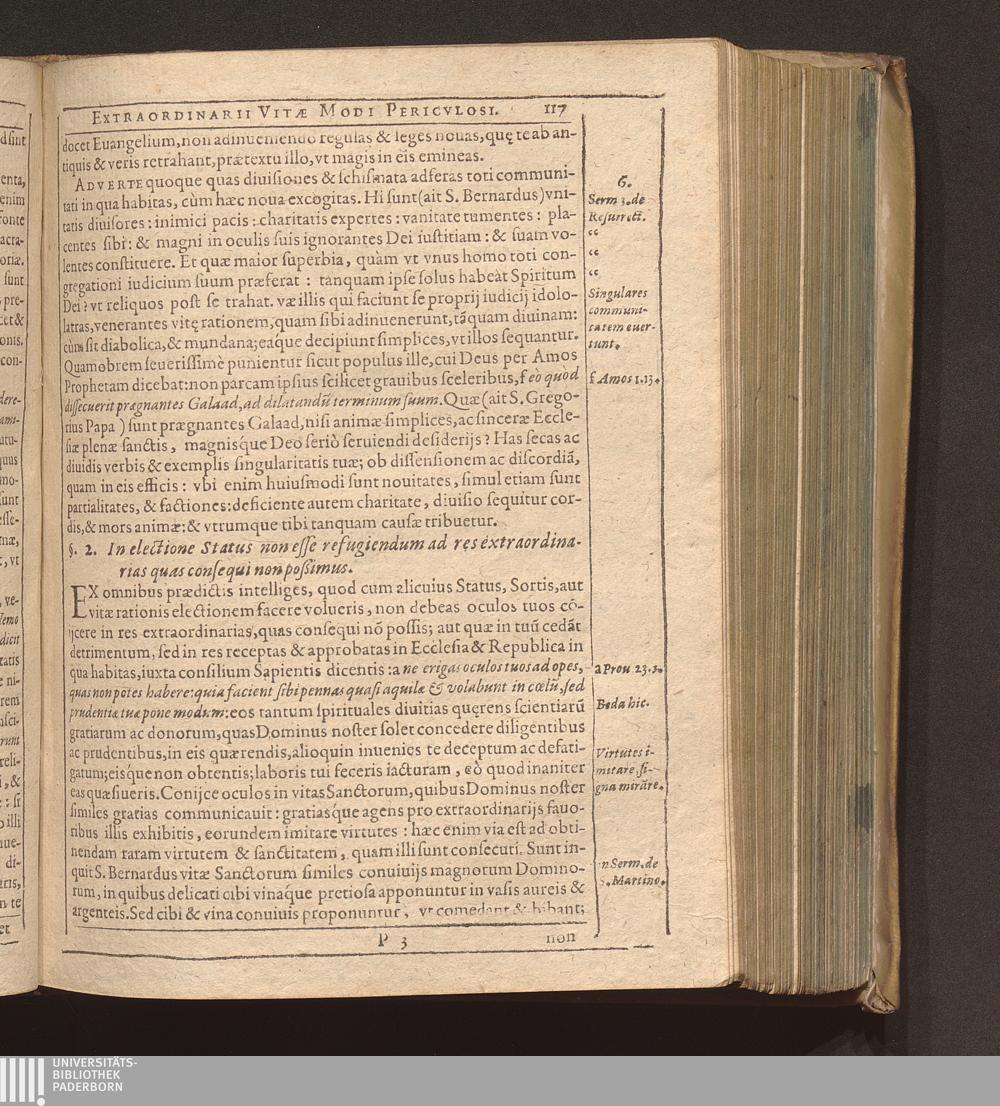 EXTRAORDINARII VITÆ MODI PERICVLOSI. 117
docet Euangelium, non adinueniendo regulas & leges nouas, quę te ab an-
tiquis & veris retrahant, prætextu illo, vt magis in eis emineas.
ADVERTE quoque quas diuisiones & schismata adferas toti communi-
tati in qua habitas, cùm hæc noua excogitas. Hi sunt (ait S. Bernardus) vni-
tatis diuisores: inimici pacis: charitatis expertes: vanitate tumentes: pla-
centes sibi: & magni in oculis suis ignorantes Dei iustitiam: & suam vo-
lentes constituere. Et quæ maior superbia, quàm vt vnus homo toti con-
gregationi iudicium suum præferat: tanquam ipse solus habeat Spiritum
Dei? vt reliquos post se trahat. væ illis qui faciunt se proprij iudicij idolo-
latras, venerantes vitę rationem, quam sibi adinuenerunt, tãquam diuinam:
cùm sit diabolica, & mundana; eáque decipiunt simplices, vt illos sequantur.
Quamobrem seuerissimè punientur sicut populus ille, cui Deus per Amos
Prophetam dicebat: non parcam ipsius scilicet grauibus sceleribus, f eò quòd
dissecuerit prægnantes Galaad, ad dilatandũ terminum suum. Quæ (ait S. Grego-
rius Papa) sunt prægnantes Galaad, nisi animæ simplices, ac sinceræ Eccle-
siæ plenæ sanctis, magnisque Deo seriò seruiendi desiderijs? Has secas ac
diuidis verbis & exemplis singularitatis tuæ; ob dissensionem ac discordiã,
quam in eis efficis: vbi enim huiusmodi sunt nouitates, simul etiam sunt
partialitates, & factiones: deficiente autem charitate, diuisio sequitur cor-
dis, & mors animæ: & vtrumque tibi tanquam causæ tribuetur.
§. 2. In electione Status non esse refugiendum ad res extraordina-
rias quas consequi non possimus.
EX omnibus prædictis intelliges, quod cum alicuius Status, Sortis, aut
vitæ rationis electionem facere volueris, non debeas oculos tuos cō-
ijcere in res extraordinarias, quas consequi nō possis; aut quæ in tuũ cedãt
detrimentum, sed in res receptas & approbatas in Ecclesia & Republica in
qua habitas, iuxta consilium Sapientis dicentis: a ne erigas oculos tuos ad opes,
quas non potes habere: quia facient sibi pennas quasi aquilæ & volabunt in cœlũ, sed
prudentiæ tuæ pone modum: eos tantum spirituales diuitias quęrens scientiarũ
gratiarum ac donorum, quas Dominus noster solet concedere diligentibus
ac prudentibus, in eis quærendis, alioquin inuenies te deceptum ac defati-
gatum; eisque non obtentis; laboris tui feceris iacturam, eò quod inaniter
eas quæsiueris. Conijce oculos in vitas Sanctorum, quibus Dominus noster
similes gratias communicauit: gratiasque agens pro extraordinarijs fauo-
ribus illis exhibitis, eorundem imitare virtutes: hæc enim via est ad obti-
nendam raram virtutem & sanctitatem, quam illi sunt consecuti. Sunt in-
quit S. Bernardus vitæ Sanctorum similes conuiuijs magnorum Domino-
rum, in quibus delicati cibi vináque pretiosa apponuntur in vasis aureis &
argenteis. Sed cibi & vina conuiuis proponuntur, vt comedant & bibant;
P 3 non
6.
Serm 3. de
Resurrect.
“
“
“
Singulares
communi-
tatem euer-
tunt.
f Amos 1.13.
a Prou 23.5.
Beda hic.
Virtutes i-
mitare si-
gna mirare.
in Serm. de
S. Martino.
UNIVERSITÄTS-
BIBLIOTHEK
PADERBORN